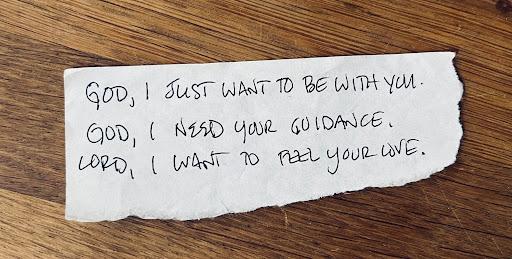 GOD, I JUST WANT TO BE WITH YOU.
GOD, I NEED YOUR GUIDANCE.
LORD, I WANT TO FEEL YOUR LOVE.